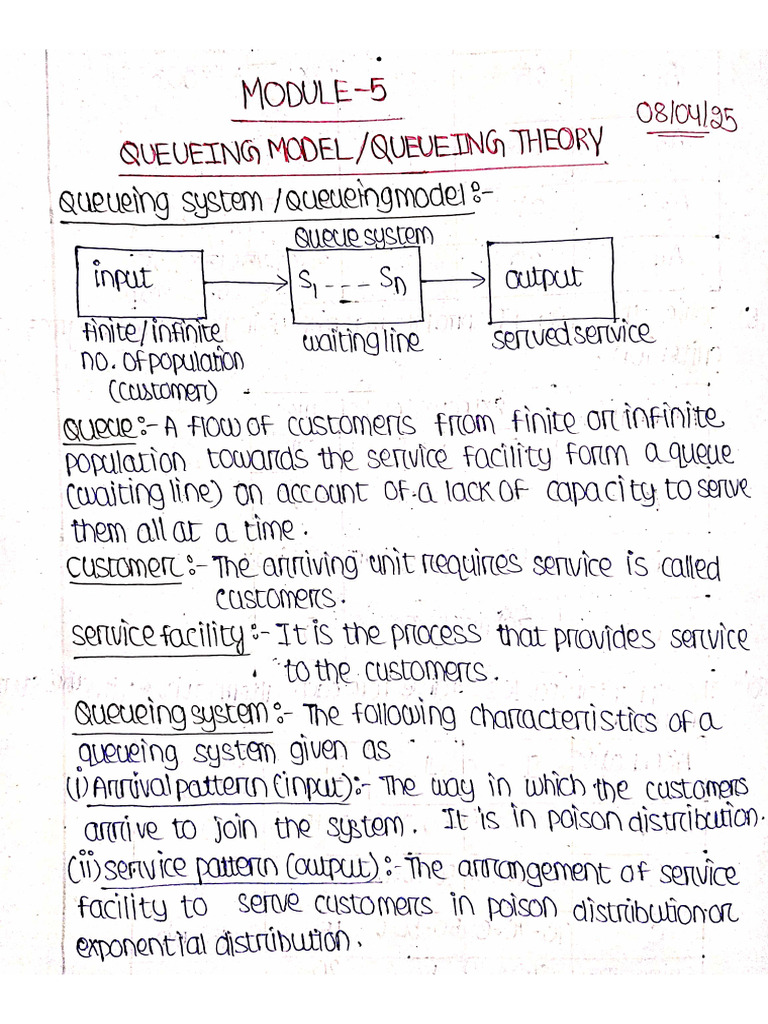 MODULE-5
08/04/25
QUEUEING MODEL/QUEUEING THEORY
Queueing system/Queueing model:-
Queue system
input
S1 - - - Sn
output
finite/infinite
no. of population
(customer)
waiting line
served service
Queue:- A flow of customers from finite or infinite
population towards the service facility form a queue
(waiting line) on account of a lack of capacity to serve
them all at a time.
Customer:- The arriving unit requires service is called
customers.
service facility:- It is the process that provides service
to the customers.
Queueing system:- The following characteristics of a
queueing system given as
(i) Arrival pattern (input):- The way in which the customers
arrive to join the system. It is in poison distribution.
(ii) service pattern (output):- The arrangement of service
facility to serve customers in poison distribution or
exponential distribution.